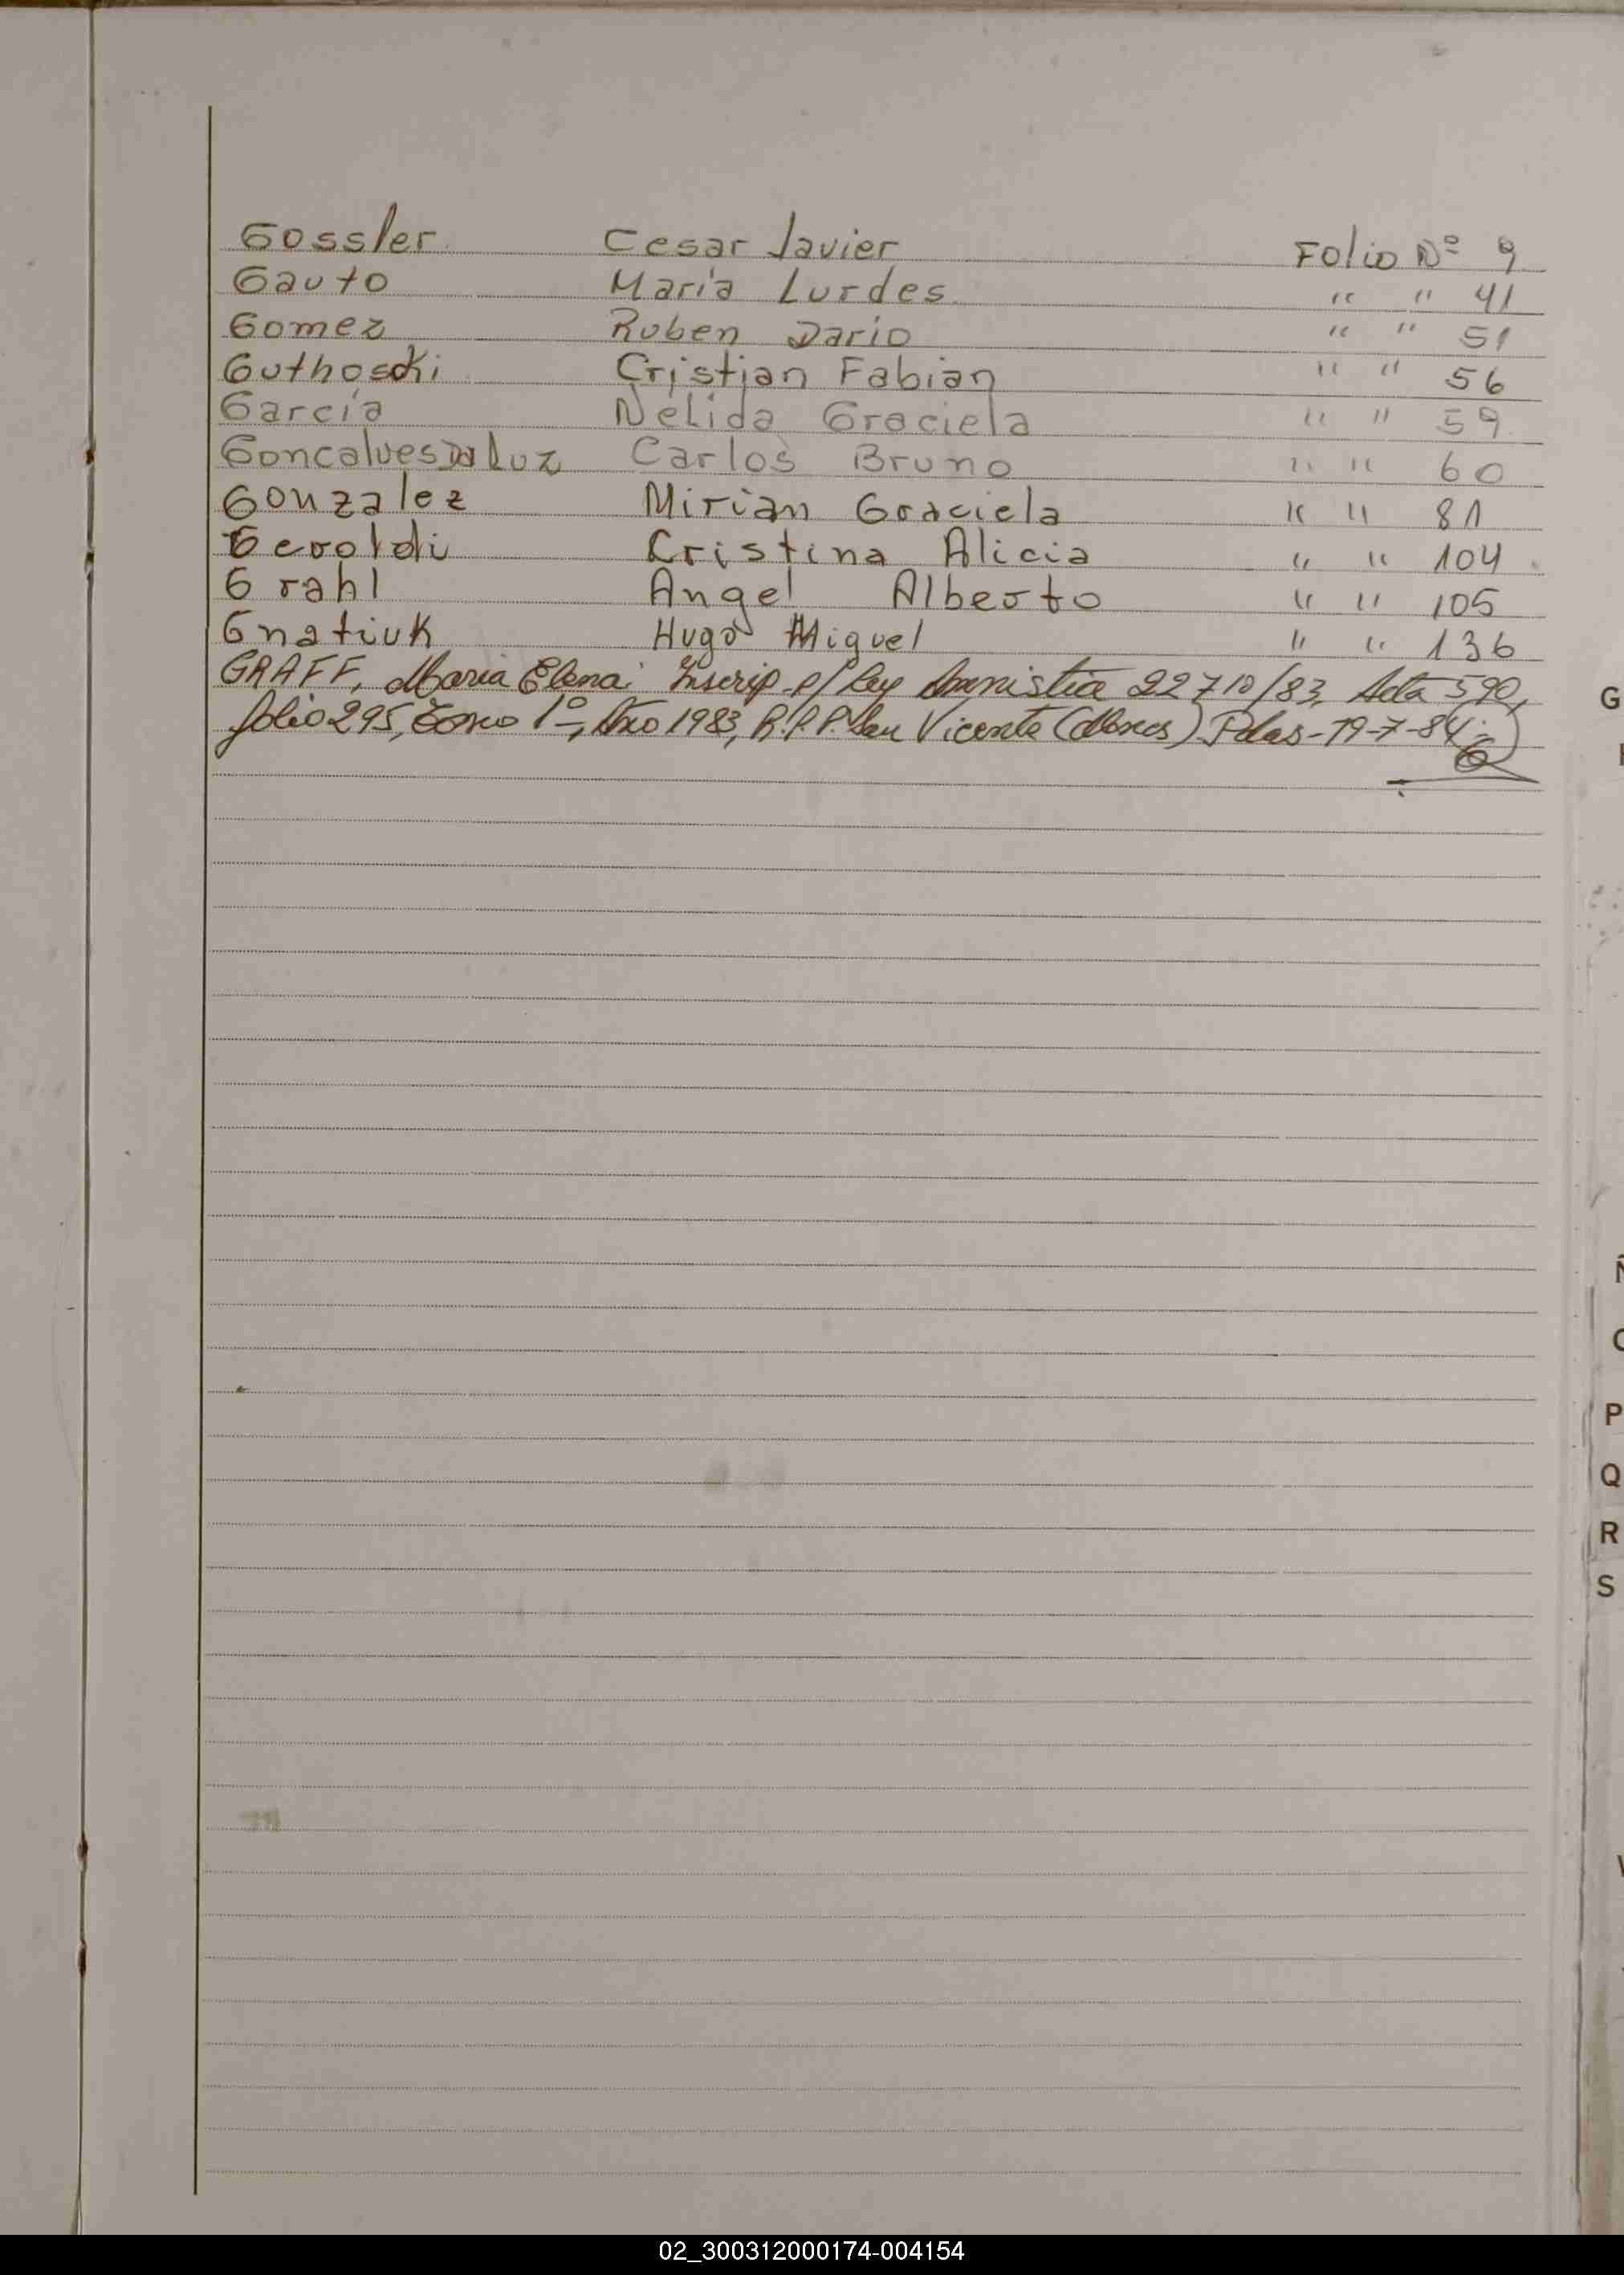 Gossler Cesar Javier Folio Nº 9
Gauto Maria Lurdes " " 41
Gomez Ruben Dario " " 51
Guthoscki Cristian Fabian " " 56
García Nelida Graciela " " 59
Goncalves Da Luz Carlos Bruno " " 60
Gonzalez Mirian Graciela " " 81
Geroldi Cristina Alicia " " 104
Grahl Angel Alberto " " 105
Gnatiuk Hugo Miguel " " 136
GRAFF, Maria Elena Inscrip p/ Ley Amnistia 22710/83, Acta 590,
folio 295, Tomo 1º, Año 1983, R.P.P. San Vicente (Mnes) Pdas-19-7-84
G
Ñ
P
Q
R
S
02_300312000174-004154